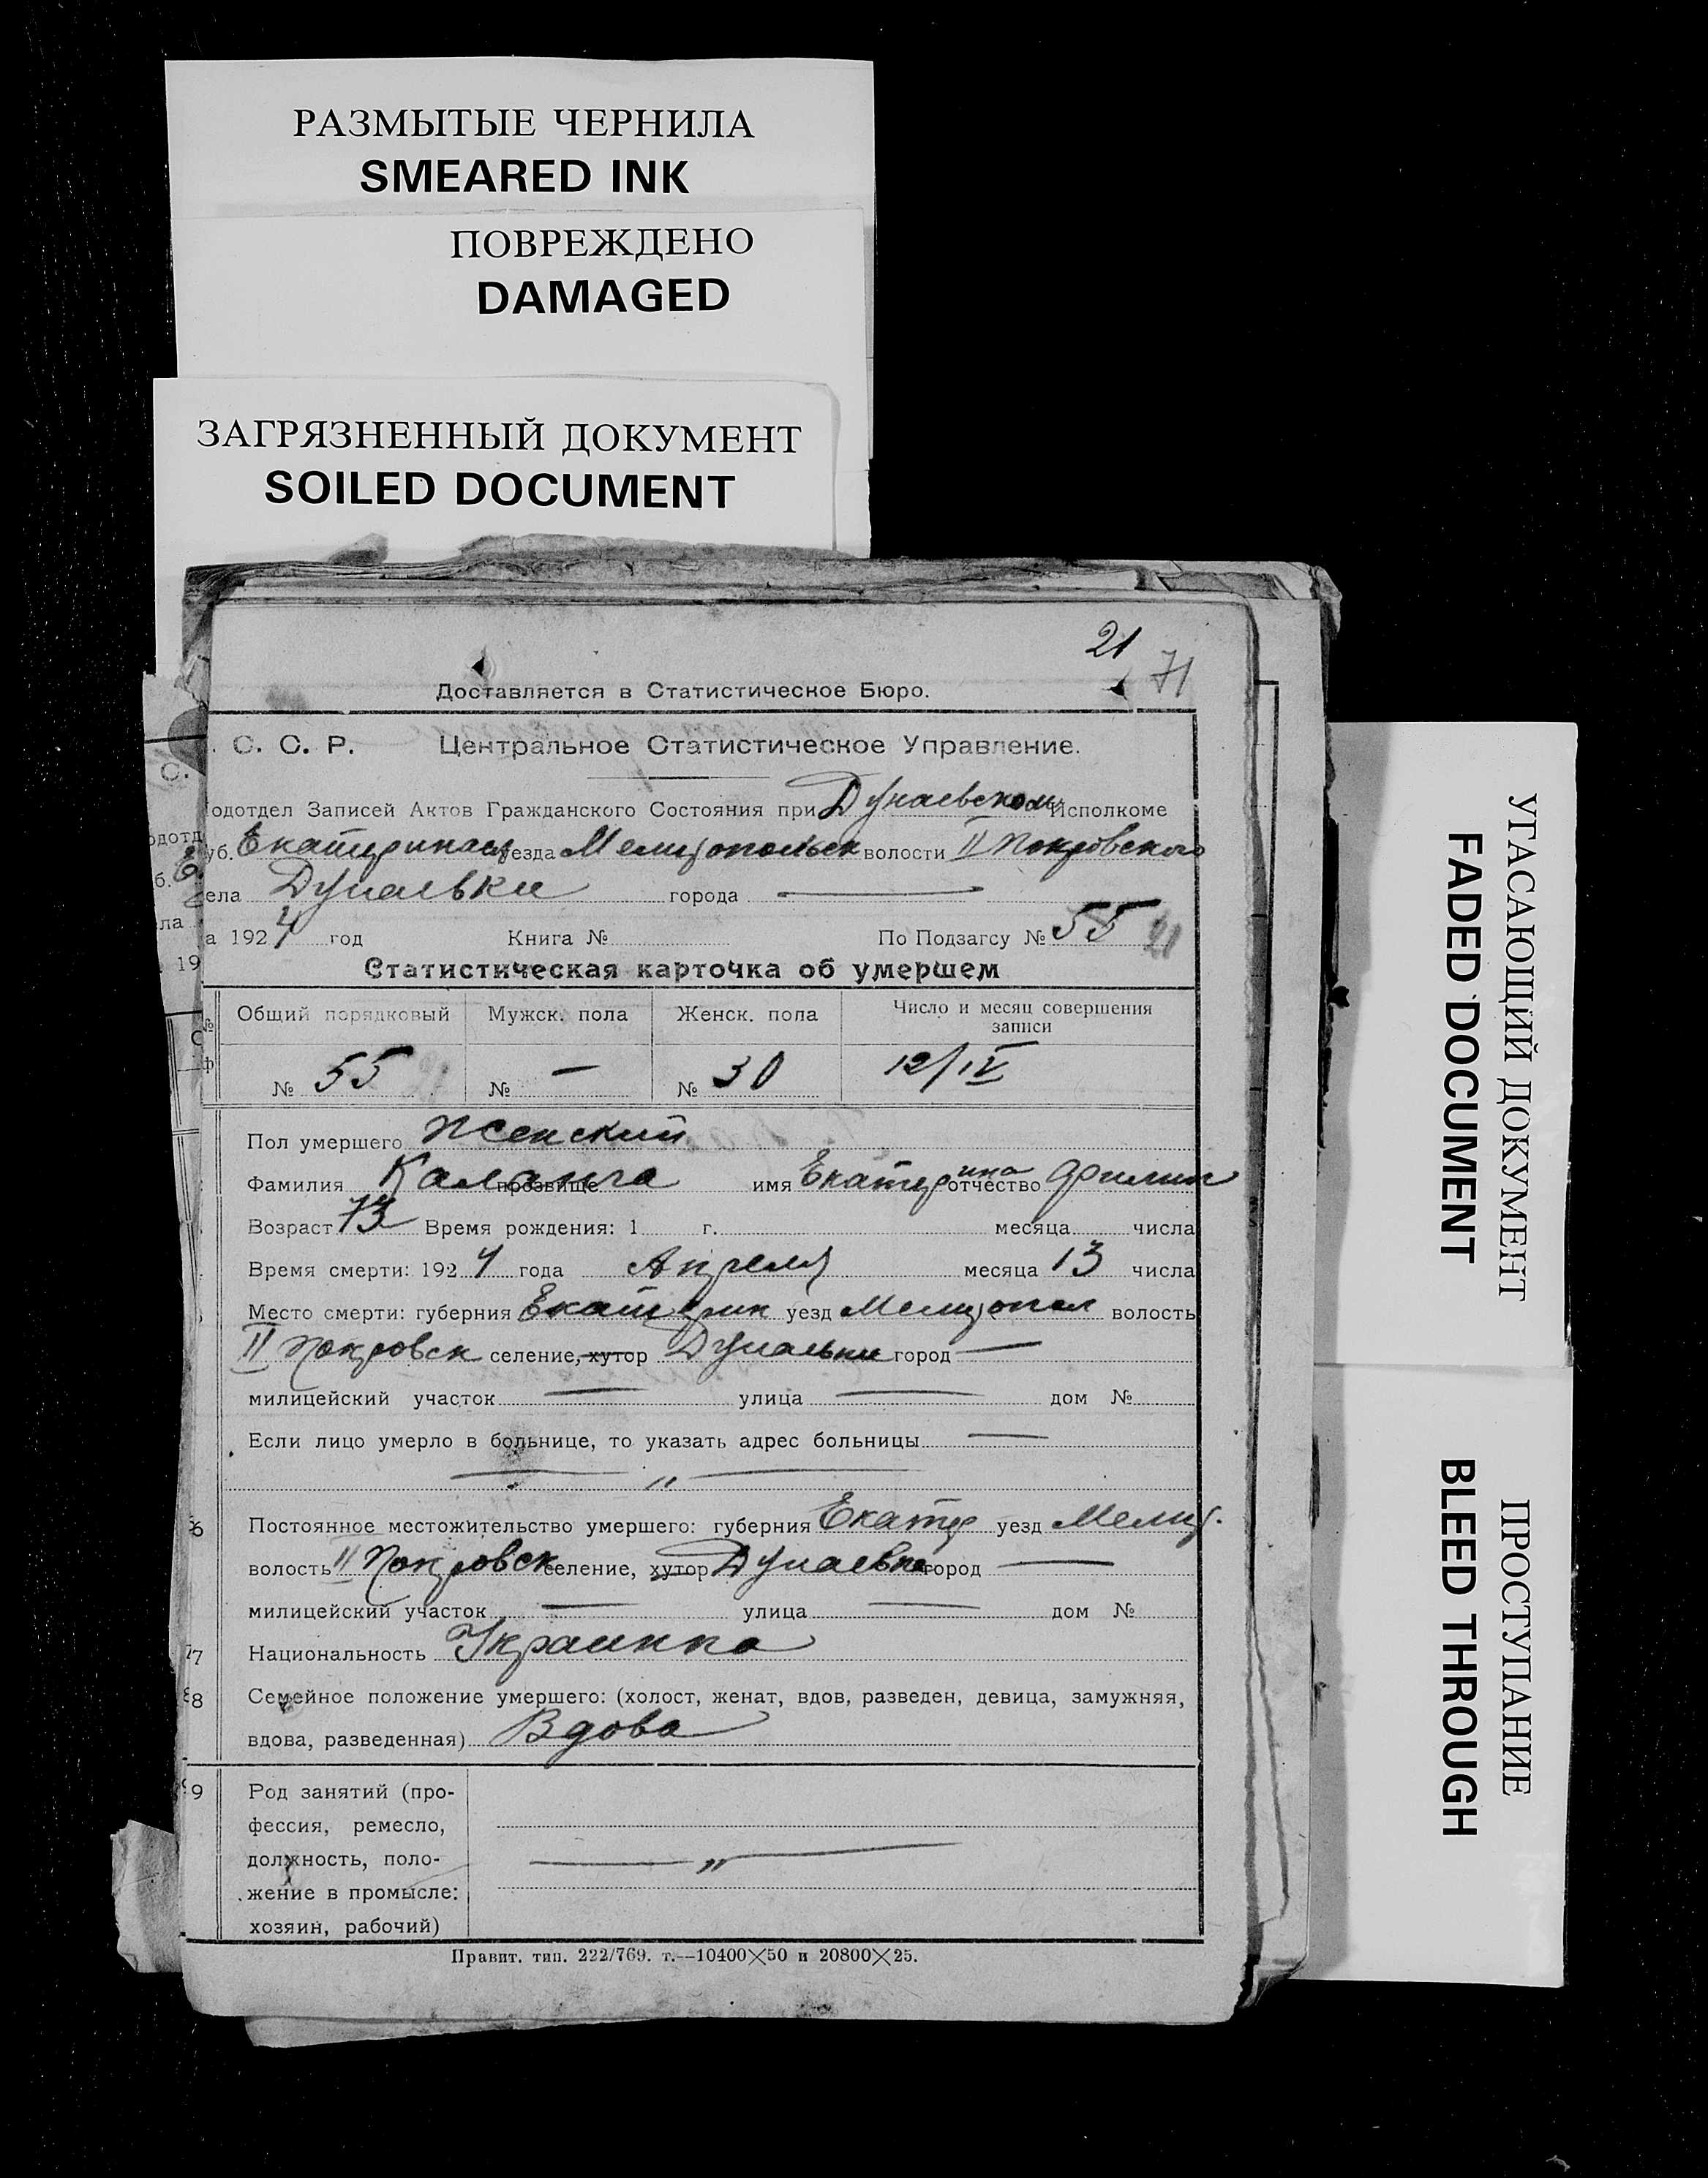 РАЗМЫТЫЕ ЧЕРНИЛА
SMEARED INK
ПОВРЕЖДЕНО
DAMAGED
ЗАГРЯЗНЕННЫЙ ДОКУМЕНТ
SOILED DOCUMENT
21
71
Доставляется в Статистическое Бюро.
. С. С. Р. Центральное Статистическое Управление.
одотдел Записей Актов Гражданского Состояния при Дунаевском Исполкоме
уб. Екатеринос уезда Мелитопольск волости II Покровского
ела Дунаевки города —
а 1924 год Книга № По Подзагсу № 55 21
Статистическая карточка об умершем
Общий порядковый Мужск. пола Женск. пола Число и месяц совершения записи
№ 55 № — № 30 12/IV
Пол умершего Женский
Фамилия прозвище имя Екатерина отчество Филип
Возраст 73 Время рождения: 1 г. месяца числа
Время смерти: 1924 года Апреля месяца 13 числа
Место смерти: губерния Екатерин уезд Мелитопол волость
II Покровск селение, хутор Дунаевки город —
милицейский участок — улица — дом №
Если лицо умерло в больнице, то указать адрес больницы —
— „ —
6 Постоянное местожительство умершего: губерния Екатер уезд Мелит.
волость II Покровск селение, хутор Дунаевка город —
милицейский участок — улица — дом №
7 Национальность Украинка
8 Семейное положение умершего: (холост, женат, вдов, разведен, девица, замужняя,
вдова, разведенная) Вдова
9 Род занятий (про-
фессия, ремесло,
должность, поло- — „ —
жение в промысле:
хозяин, рабочий)
Правит. тип. 222/769. т.—10400×50 и 20800×25.
УГАСАЮЩИЙ ДОКУМЕНТ
FADED DOCUMENT
ПРОСТУПАНИЕ
BLEED THROUGH